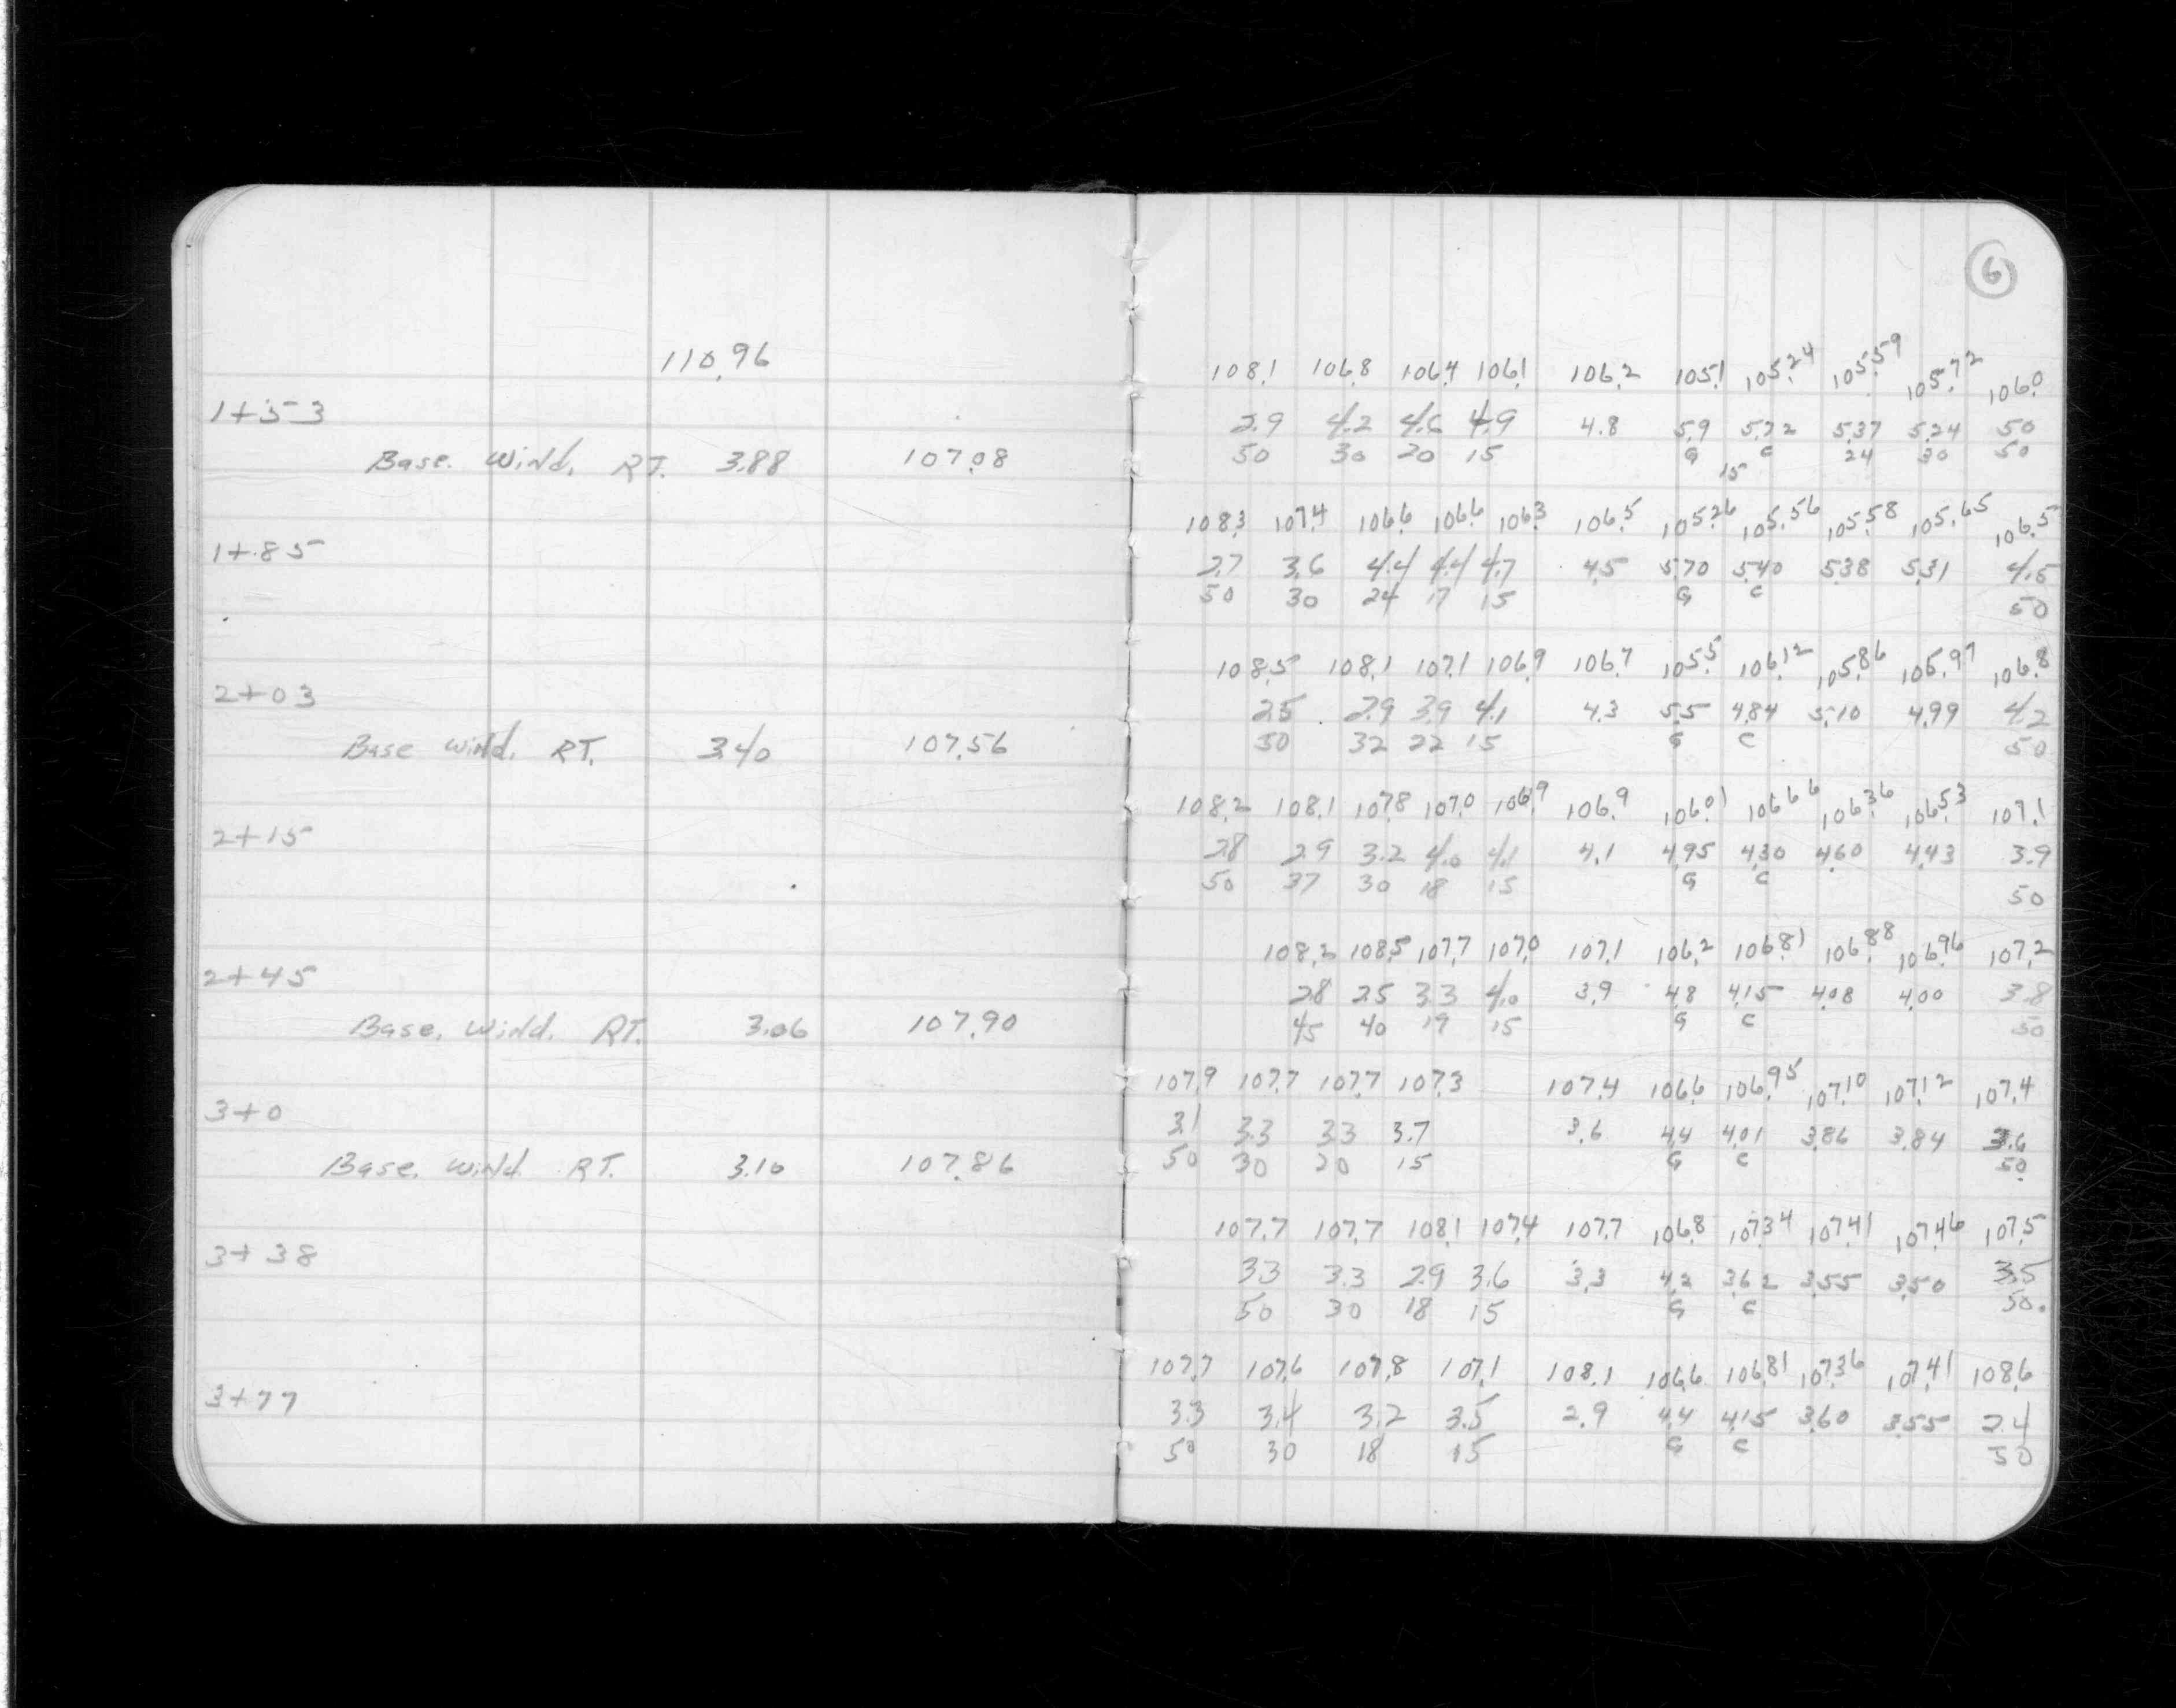 6
110.96
108.1 106.8 106.4 106.1 106.2 105.1 105.24 105.59 105.72 106.0
1+53 2.9 4.2 4.6 4.9 4.8 5.9 5.72 5.37 5.24 50
Base. Wind. RT. 3.88 107.08 50 30 20 15 G C 24 30 50
15
108.3 107.4 106.6 106.6 106.3 106.5 105.26 105.56 105.58 105.65 106.5
1+85 2.7 3.6 4.4 4.4 4.7 4.5 5.70 5.40 5.38 5.31 4.5
50 30 24 17 15 G C 50
108.5 108.1 107.1 106.9 106.7 105.5 106.12 105.86 105.97 106.8
2+03 2.5 2.9 3.9 4.1 4.3 5.5 4.84 5.10 4.99 4.2
Base Wind. RT. 3.40 107.56 50 32 22 15 G C 50
108.2 108.1 107.8 107.0 106.9 106.9 106.01 106.66 106.36 106.53 107.1
2+15 2.8 2.9 3.2 4.0 4.1 4.1 4.95 4.30 4.60 4.43 3.9
50 37 30 18 15 G C 50
108.2 108.5 107.7 107.0 107.1 106.2 106.81 106.88 106.96 107.2
2+45 2.8 2.5 3.3 4.0 3.9 4.8 4.15 4.08 4.00 3.8
Base. Wind. RT. 3.06 107.90 45 40 19 15 G C 50
107.9 107.7 107.7 107.3 107.4 106.6 106.95 107.10 107.12 107.4
3+0 3.1 3.3 3.3 3.7 3.6 4.4 4.01 3.86 3.84 3.6
Base. Wind RT. 3.10 107.86 50 30 20 15 G C 50
107.7 107.7 108.1 107.4 107.7 106.8 107.34 107.41 107.46 107.5
3+38 3.3 3.3 2.9 3.6 3.3 4.2 3.62 3.55 3.50 3.5
50 30 18 15 G C 50.
107.7 107.6 107.8 107.1 108.1 106.6 106.81 107.36 107.41 108.6
3+77 3.3 3.4 3.2 3.5 2.9 4.4 4.15 3.60 3.55 2.4
50 30 18 15 G C 50